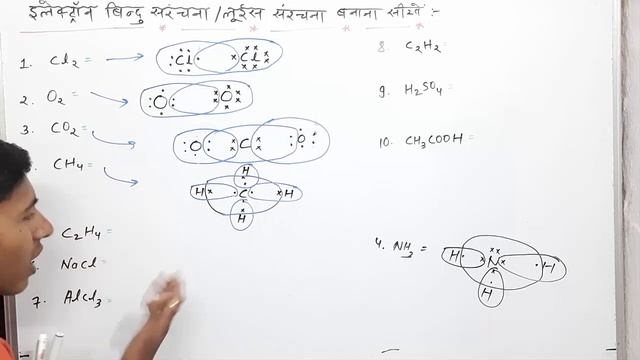 इलेक्ट्रॉन बिन्दु संरचना /लूईस संरचना बनाना सीखें :-
1. Cl₂ =
:Cl Cl
2. O₂ =
O O
3. CO₂ =
O C O
CH₄ =
H
H C H
H
C₂H₄ =
NaCl =
7. AlCl₃ =
8. C₂H₂ =
9. H₂SO₄ =
10. CH₃COOH =
4. NH₃ =
H N H
H